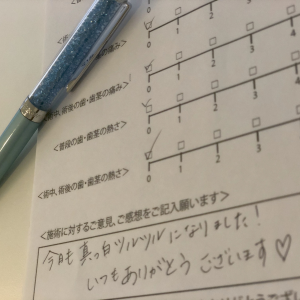 0 1 2 3
術後の歯・歯茎の痛み>
0 1 2 3 4
<術中、術後の歯・歯茎の痛み>
0 1 2 3 4
<普段の歯・歯茎の熱さ>
0 1 2 3
<術中、術後の歯・歯茎の熱さ>
0 1 2 3
<施術に対するご意見、ご感想をご記入願います>
今日も真っ白ツルツルになりました！
いつもありがとうございます♡
りがとうございま